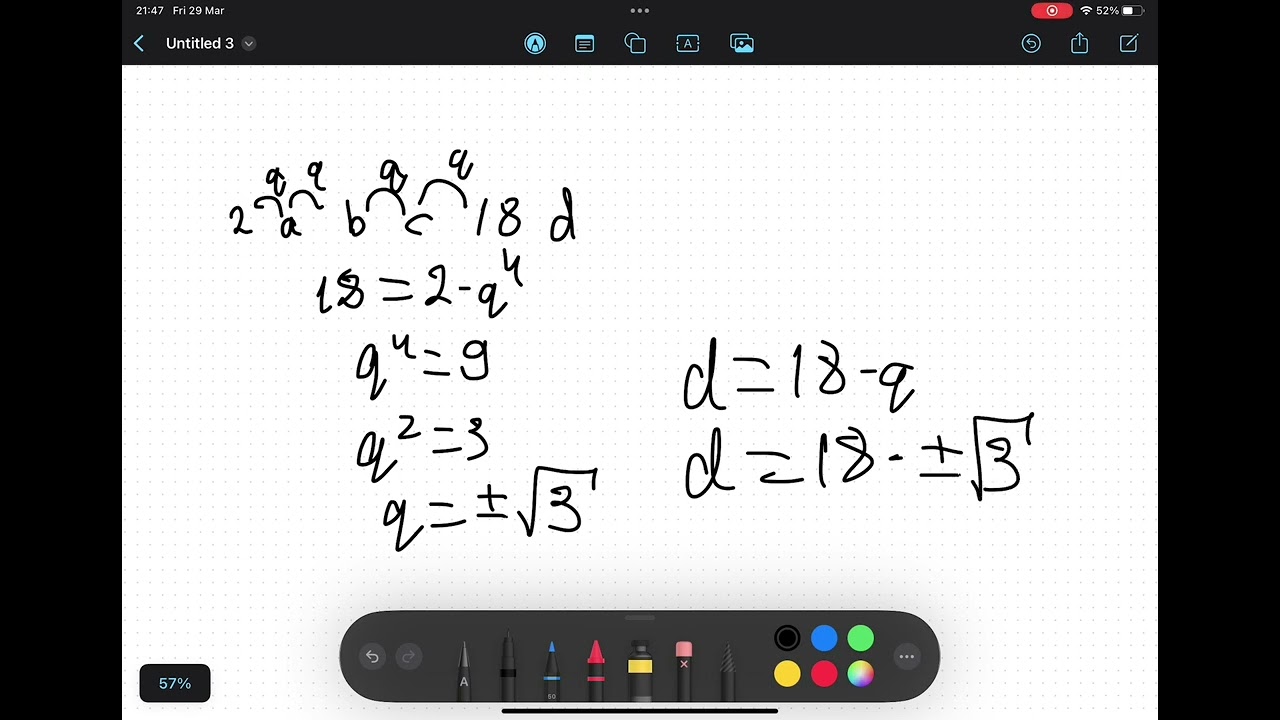 21:47 Fri 29 Mar
52%
Untitled 3
A
q q q q
2 a b c 18 d
18 = 2 · q⁴
q⁴ = 9
q² = 3
q = ±√3
d = 18 · q
d = 18 · ±√3
A
50
57%